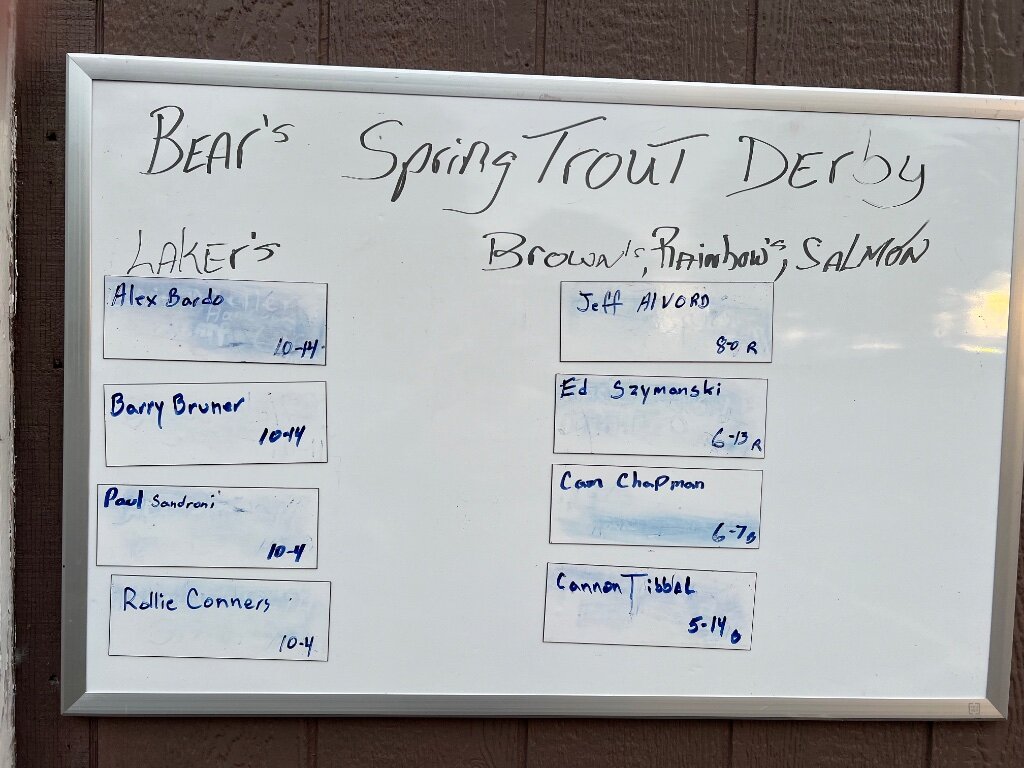 BEAr's Spring TrouT DErby
LAKEr's
Alex Bardo
10-14
Barry Bruner
10-14
Paul Sandroni
10-4
Rollie Conners
10-4
Brown's, Rainbow's, SALMON
Jeff AlVORD
8-0 R
Ed Szymanski
6-13 R
Cam ChaPman
6-7 B
Cannon TibbaL
5-14 B